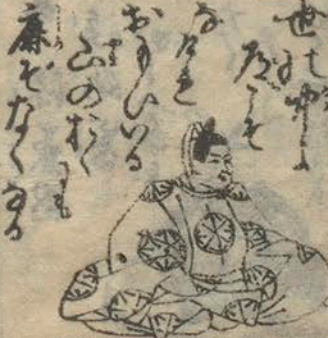 世の中よ
道こそ
なけれ
おもひいる
山のおく
にも
鹿ぞなくなる